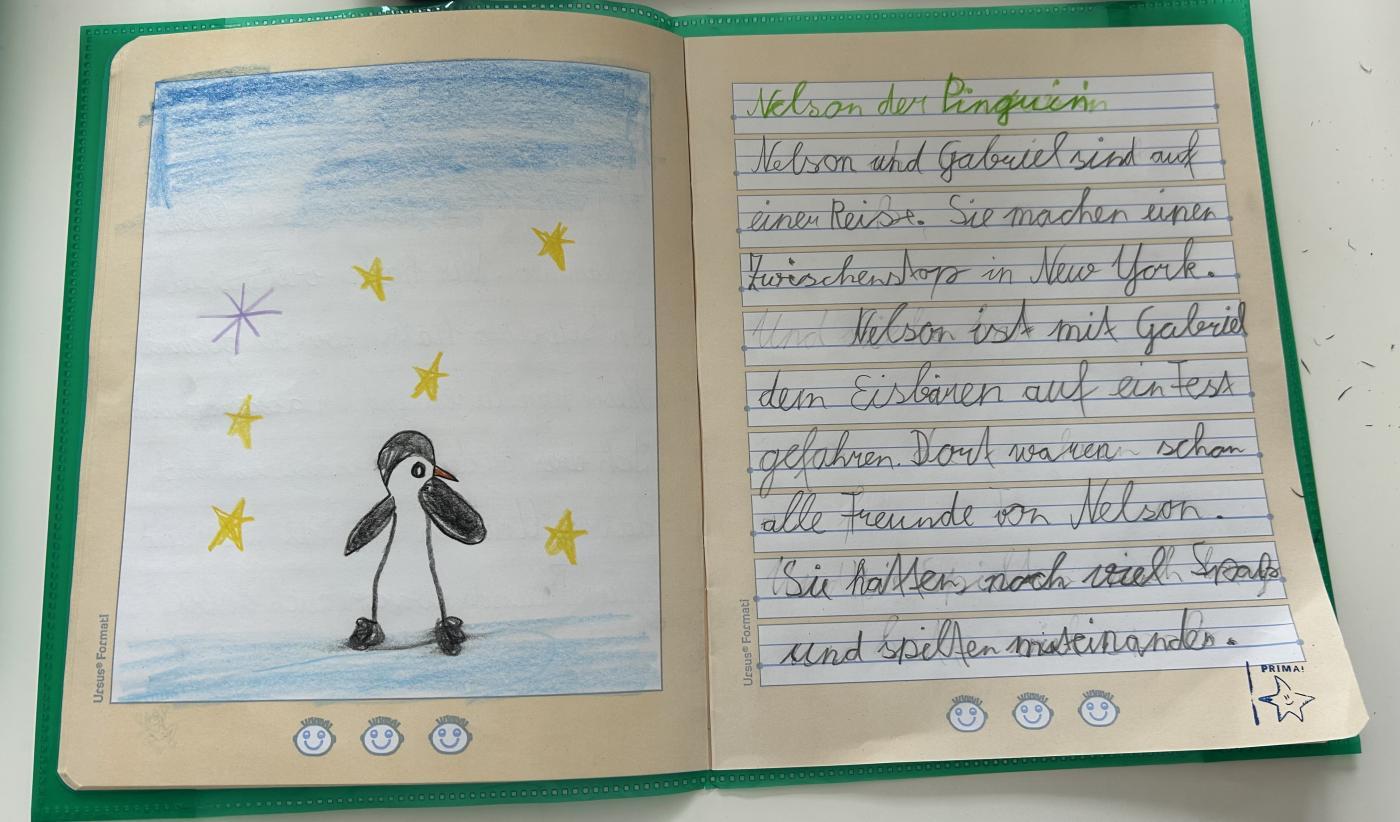 Ursus® Formati
Nelson der Pinguin
Nelson und Gabriel sind auf
einer Reise. Sie machen einen
Zwischenstop in New York.
Und Nelson ist mit Gabriel
dem Eisbären auf ein Fest
gefahren. Dort waren schon
alle Freunde von Nelson.
Sie hatten noch viel Spaß
und spilten miteinander.
Ursus® Formati
PRIMA!